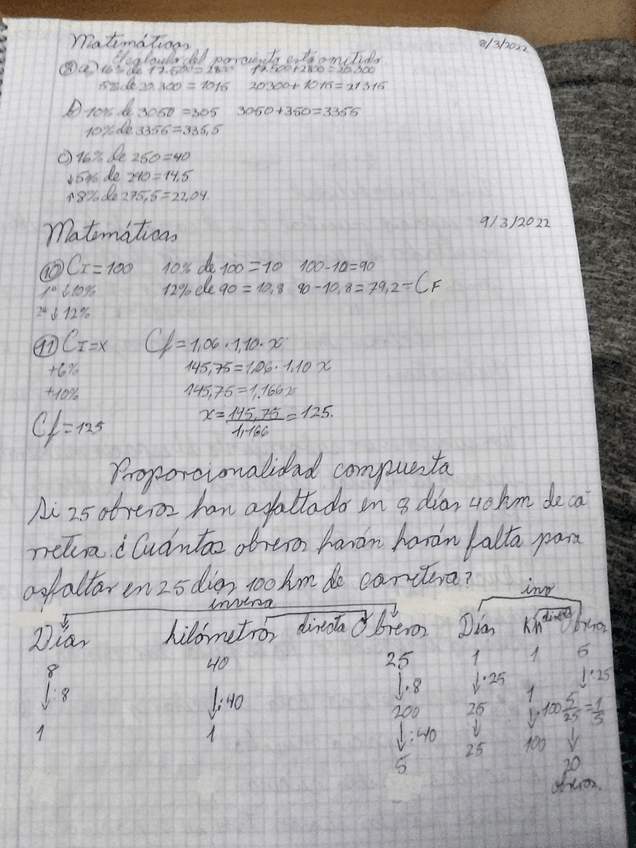 Matemáticas 8/3/2022
El cálculo del porciento está omitido
⑧ a) 16% de 17.500=2800 17.500+2800=20.300
5% de 20.300=1015 20300+1015=21315
b) 10% de 3050=305 3050+350=3355
10% de 3355=335,5
c) 16% de 250=40
↓5% de 290=14,5
↑8% de 275,5=22,04
Matemáticas 9/3/2022
⑩ CI=100 10% de 100=10 100-10=90
1º ↓10% 12% de 90=10,8 90-10,8=79,2=CF
2º ↓12%
⑪ CI=x Cf=1,06·1,10·x
+6% 145,75=1,06·1,10x
+10% 145,75=1,166x
Cf=125 x=145,75/1,166=125.
Proporcionalidad compuesta
Si 25 obreros han asfaltado en 8 días 40km de ca
rretera. ¿Cuántos obreros harán harán falta para
asfaltar en 25 días 100km de carretera?
inversa inv
Días kilómetros directa Obreros Días Km direct Obreros
8 40 25 1 1 5
↓:8 ↓:40 ↓·8 ↓·25 ↓:25
200 25 1 5/25=1/5
1 1 ↓:40 ↓ ↓·100 ↓
5 25 100 20
obreros.